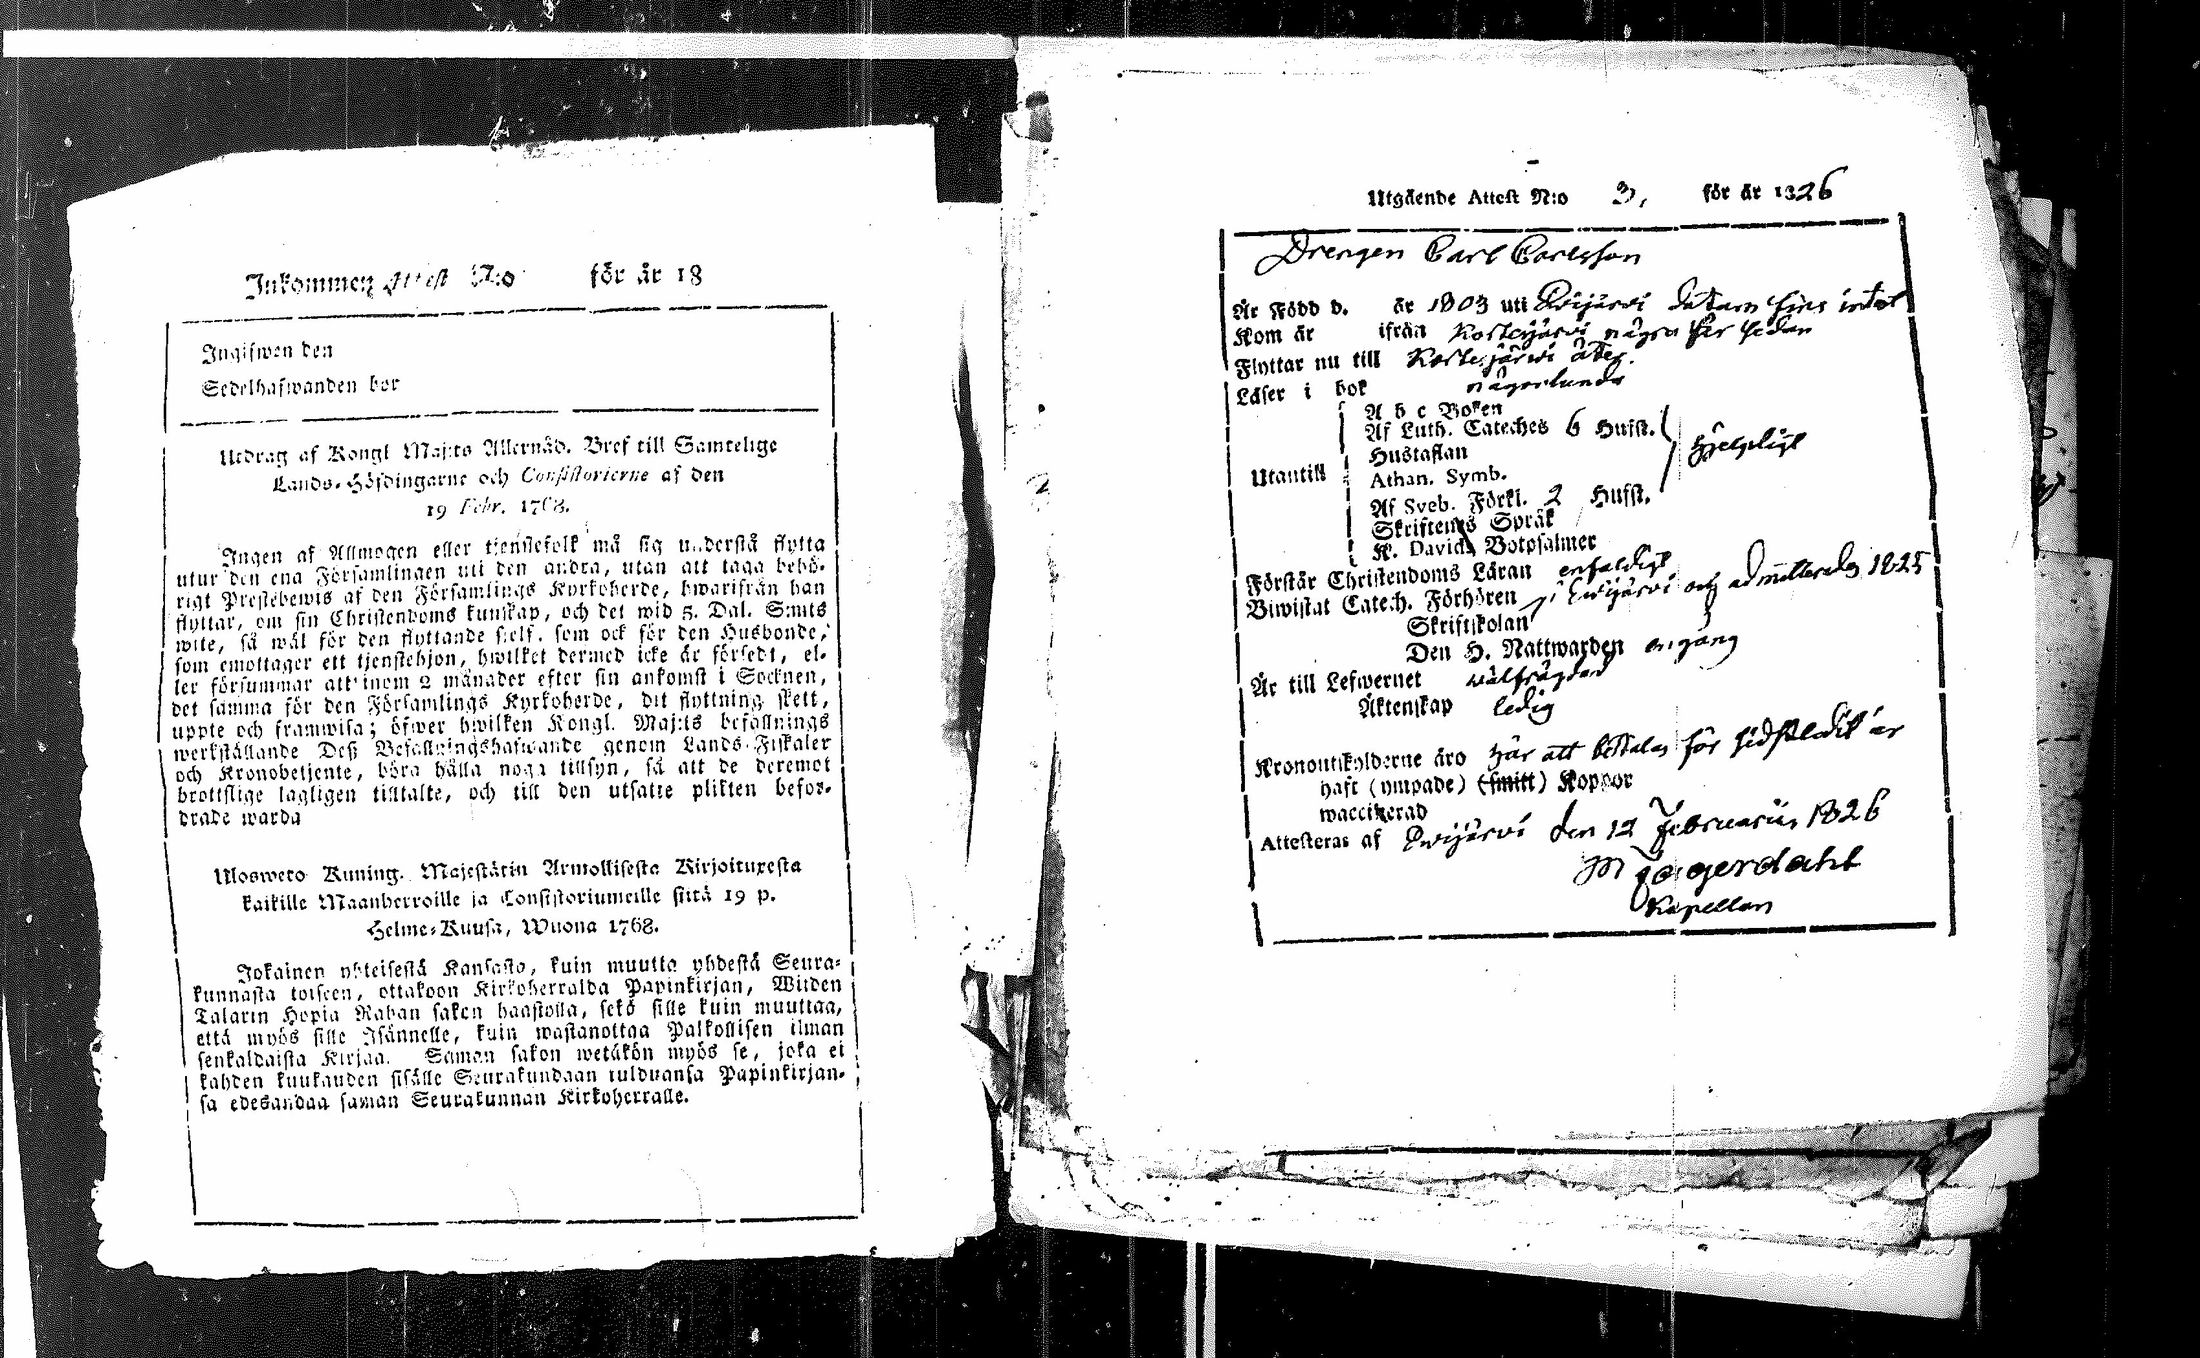 Inkommen Attest N:o för år 18
Ingifwen den
Sedelhafwanden bor
Utdrag af Kongl Maj:ts Allernåd. Bref till Samtelige
Lands-Höfdingarne och Consistorierne af den
19 Febr. 1768.
Ingen af Allmogen eller tjenstefolk må sig understå flytta
utur den ena Församlingen uti den andra, utan att taga behö-
rigt Prestebewis af den Församlings Kyrkoherde, hwarifrån han
flyttar, om sin Christendoms kunskap, och det wid 5. Dal. S:mts
wite, så wäl för den flyttande sielf, som ock för den Husbonde,
som emottager ett tjenstehjon, hwilket dermed icke är försedt, el-
ler försummar att inom 2 månader efter sin ankomst i Socknen,
det samma för den Församlings Kyrkoherde, dit flyttning skett,
uppte och framwisa; öfwer hwilken Kongl. Maj:ts befallnings
werkställande Deß Befallningshafwande genom Lands-Fiskaler
och Kronobetjente, böra hålla noga tillsyn, så att de deremot
brottslige lagligen tilltalte, och till den utsatte plikten befor-
drade warda
Ulosweto Kuning. Majestätin Armollisesta Kirjoituxesta
kaikille Maanherroille ja Consistoriumeille siitä 19 p.
Helme-Kuusa, Wuona 1768.
Jokainen yhteisestä Kansasta, kuin muutta yhdestä Seura-
kunnasta toiseen, ottakoon Kirkoherralda Papinkirjan, Wiiden
Talarin Hopia Rahan sakon haastolla, sekä sille kuin muuttaa,
että myös sille Isännelle, kuin wastanottaa Palkollisen ilman
senkaldaista Kirjaa. Saman sakon wetäkön myös se, joka ei
kahden kuukauden sisälle Seurakundaan tulduansa Papinkirjan-
sa edesandaa saman Seurakunnan Kirkoherralle.
Utgående Attest N:o 3, för år 1826
Drengen Carl Carlsson
Är Född d. år 1803 uti Ewijärvi datum fins intet
Kom år ifrån Kortesjärvi några åhr sedan
Flyttar nu till Kortesjärwi åter.
Läser i bok någorlunda
A b c Boken
Af Luth. Cateches 6 Hufst.
Hustaflan
Utantill Athan. Symb. hjelpligt
Af Sveb. Förkl. 2 Hufst.
Skriftenes Språk
K. Davids Botpsalmer
Förstår Christendoms Läran enfaldigt
Biwistat Catech. Förhören i Ewijärvi och admitterades 1825
Skriftskolan
Den H. Nattwarden en gång
Är till Lefwernet wälfrägdad
Äktenskap ledig
Kronoutskylderne äro här att betalas för sidstledit år
haft (ympade) (smitt) Koppor
waccinerad
Attesteras af Ewijärvi den 12 Februarii 1826
M Jägerdahl
Kapellan